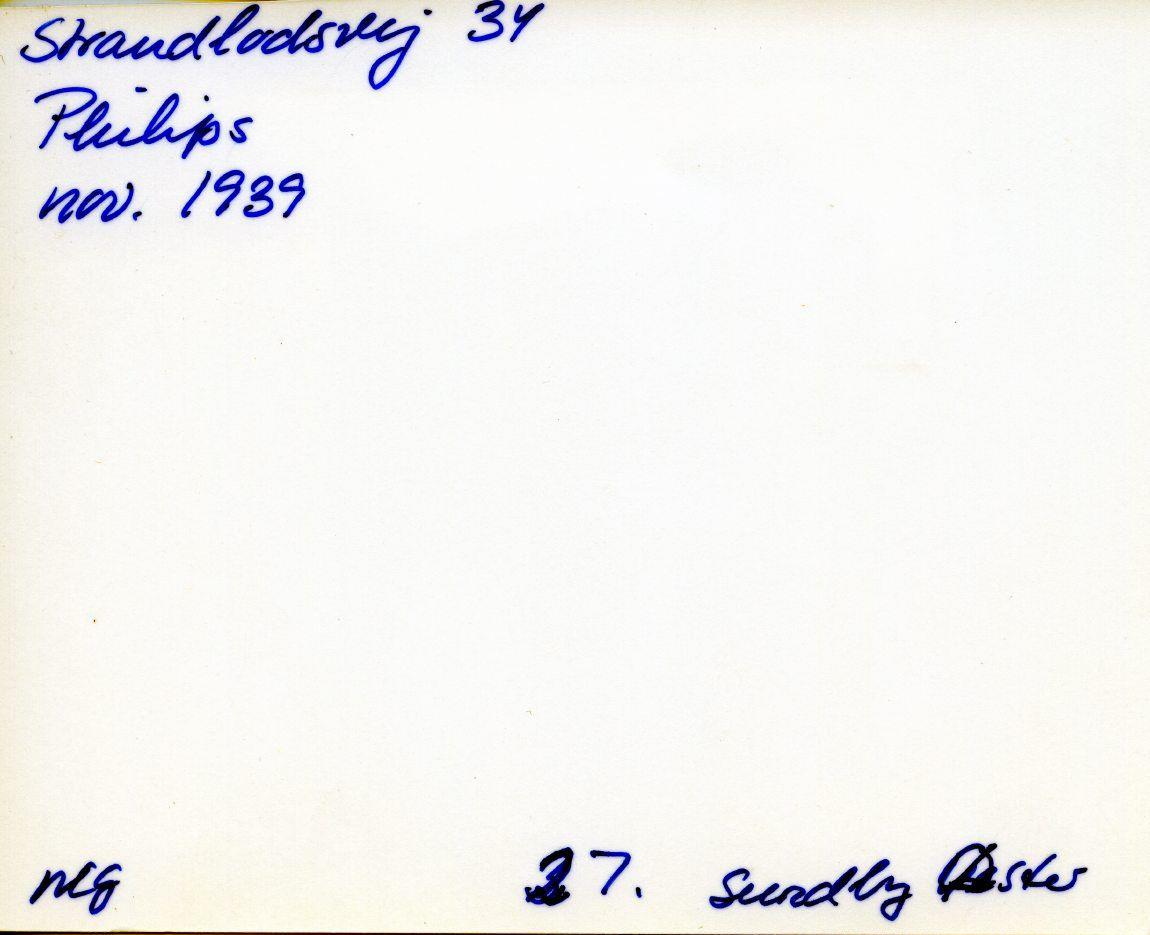 Strandlodsvej 34
Philips
nov. 1939
neg 27. Sundby Øster